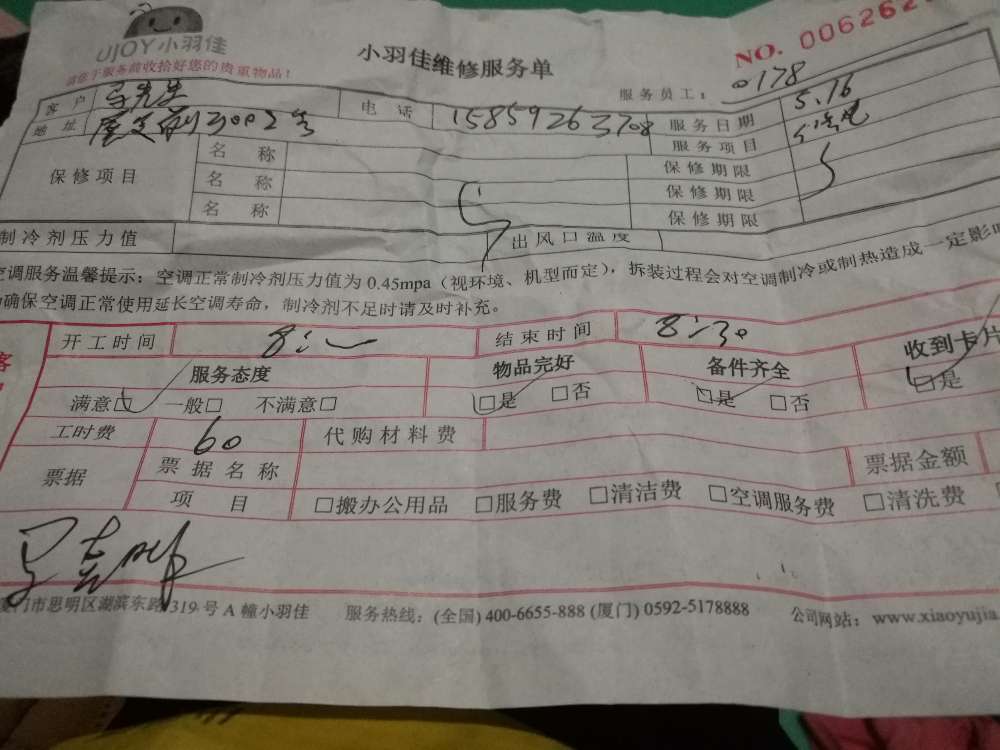 UJOY小羽佳
请您于服务前收拾好您的贵重物品!
小羽佳维修服务单
NO. 006262
服务员工: 0178
客户 电话 15859263708 服务日期 5.16
地址 服务项目
保修项目 名称 保修期限
名称 保修期限
名称 保修期限
制冷剂压力值 出风口温度
空调服务温馨提示:空调正常制冷剂压力值为 0.45mpa(视环境、机型而定),拆装过程会对空调制冷或制热造成一定影响
确保空调正常使用延长空调寿命,制冷剂不足时请及时补充。
客
开工时间 结束时间 8:30
服务态度 物品完好 备件齐全 收到卡片
满意□ 一般□ 不满意□ □是 □否 □是 □否 □是
工时费 60 代购材料费
票据 票据名称 票据金额
项目 □搬办公用品 □服务费 □清洁费 □空调服务费 □清洗费
厦门市思明区湖滨东路 319 号 A 幢小羽佳 服务热线:(全国) 400-6655-888 (厦门) 0592-5178888 公司网站:www.xiaoyujia.